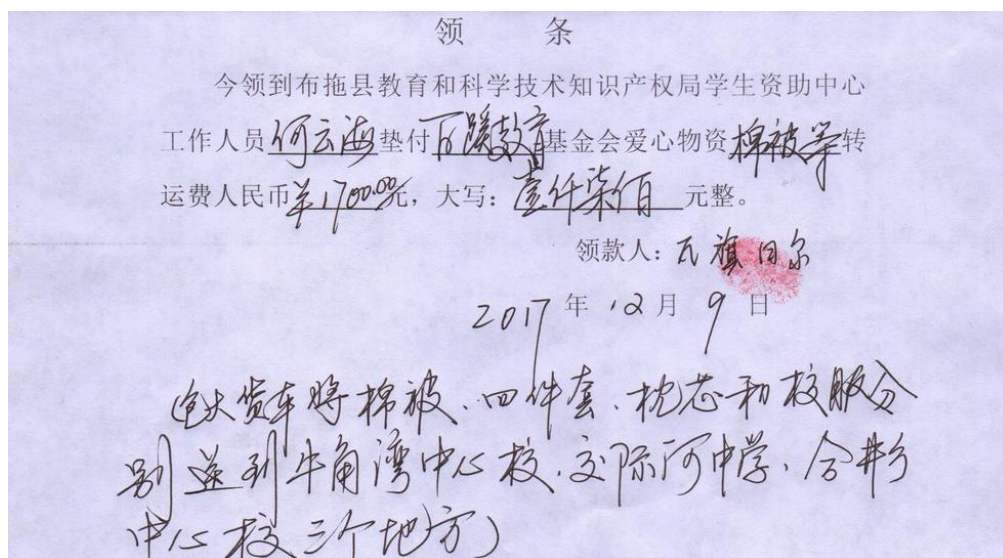 领 条
今领到布拖县教育和科学技术知识产权局学生资助中心
工作人员何云海垫付百蹊教育基金会爱心物资棉被等转
运费人民币¥1700.00元，大写：壹仟柒佰 元整。
领款人：瓦旗日尔
2017 年 12 月 9 日
(包大货车将棉被、四件套、枕芯和校服分
别送到牛角湾中心校、交际河中学、合井乡
中心校三个地方)